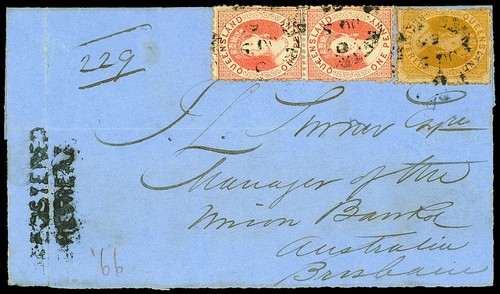 QUEENSLAND
ONE PENNY
QUEENSLAND
ONE PENNY
QUEENSLAND
229
J L Turner Esqre
Manager of the
Union Bank of
Australia
Brisbane
REGISTERED
'66